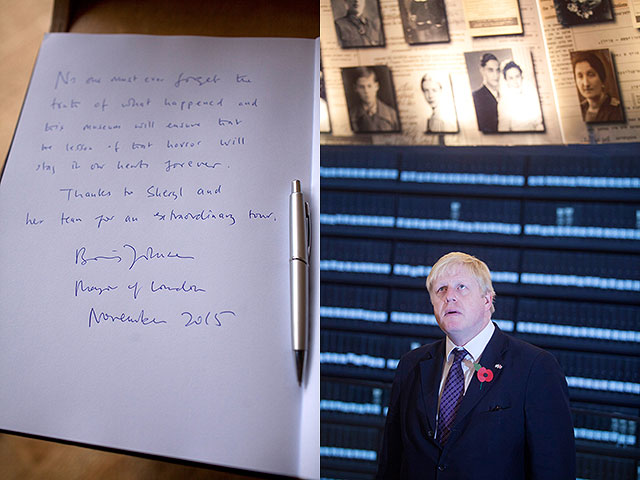 No one must ever forget the
truth of what happened and
this museum will ensure that
the lesson of that horror will
stay in our hearts forever.
Thanks to Sheryl and
her team for an extraordinary tour.
Boris Johnson
Mayor of London
November 2015